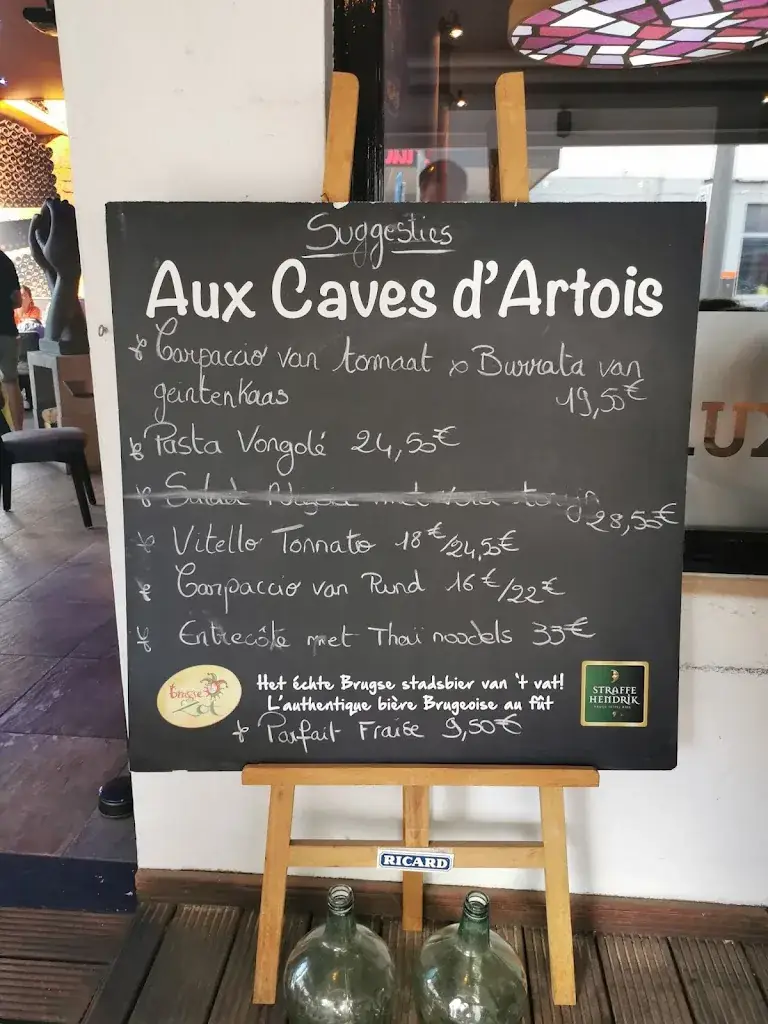 Suggesties
Aux Caves d'Artois
* Carpaccio van tomaat x Burrata van
geintenkaas 19,50€
* Pasta Vongolé 24,50€
* Salad met
28,50€
* Vitello Tonnato 18€/24,5€
* Carpaccio van Rund 16€/22€
* Entrecôte met Thaï noodels 33€
Brugse
Zot
Het échte Brugse stadsbier van 't vat!
L'authentique bière Brugeoise au fût
STRAFFE
HENDRIK
* Parfait Fraise 9,50€
RICARD
UX